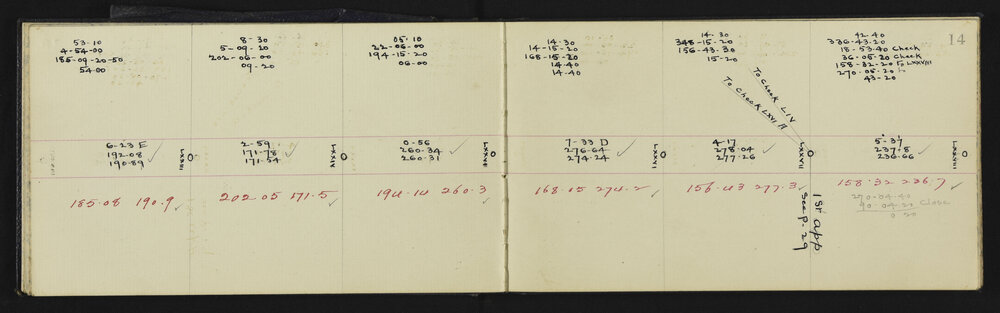 53.10
4-54-00
185-09-20-50
54.00
8-30
5-09-20
202-06-00
09-20
05.10
22-06-00
194-15-20
06-00
14-30
14-15-20
168-15-20
14.40
14-40
14-30
348-15-20
156-43-30
15-20
To Check LIV
To Check LXVI A
42-40
336-43-20
18-53-40 Check
36-05-20 Check
158-32-20 To LXXVIII
270-05-20
43-20
14
6-23 E
192.08
190.89
2-59
171-78
171-54
LXXIV
0-56
260-34
260.31
7-33 D
276-64
274.24
4-17
278.04
277-26
LXXVII
5-37
237.8
236.66
LXXVIII
185.08 190.9
202 05 171.5
194-14 260.3
168.15 274.2
156.43 277.3
158.32 236.7
1st app
see p. 29
270-04-40
90-04-20 Close
0 20